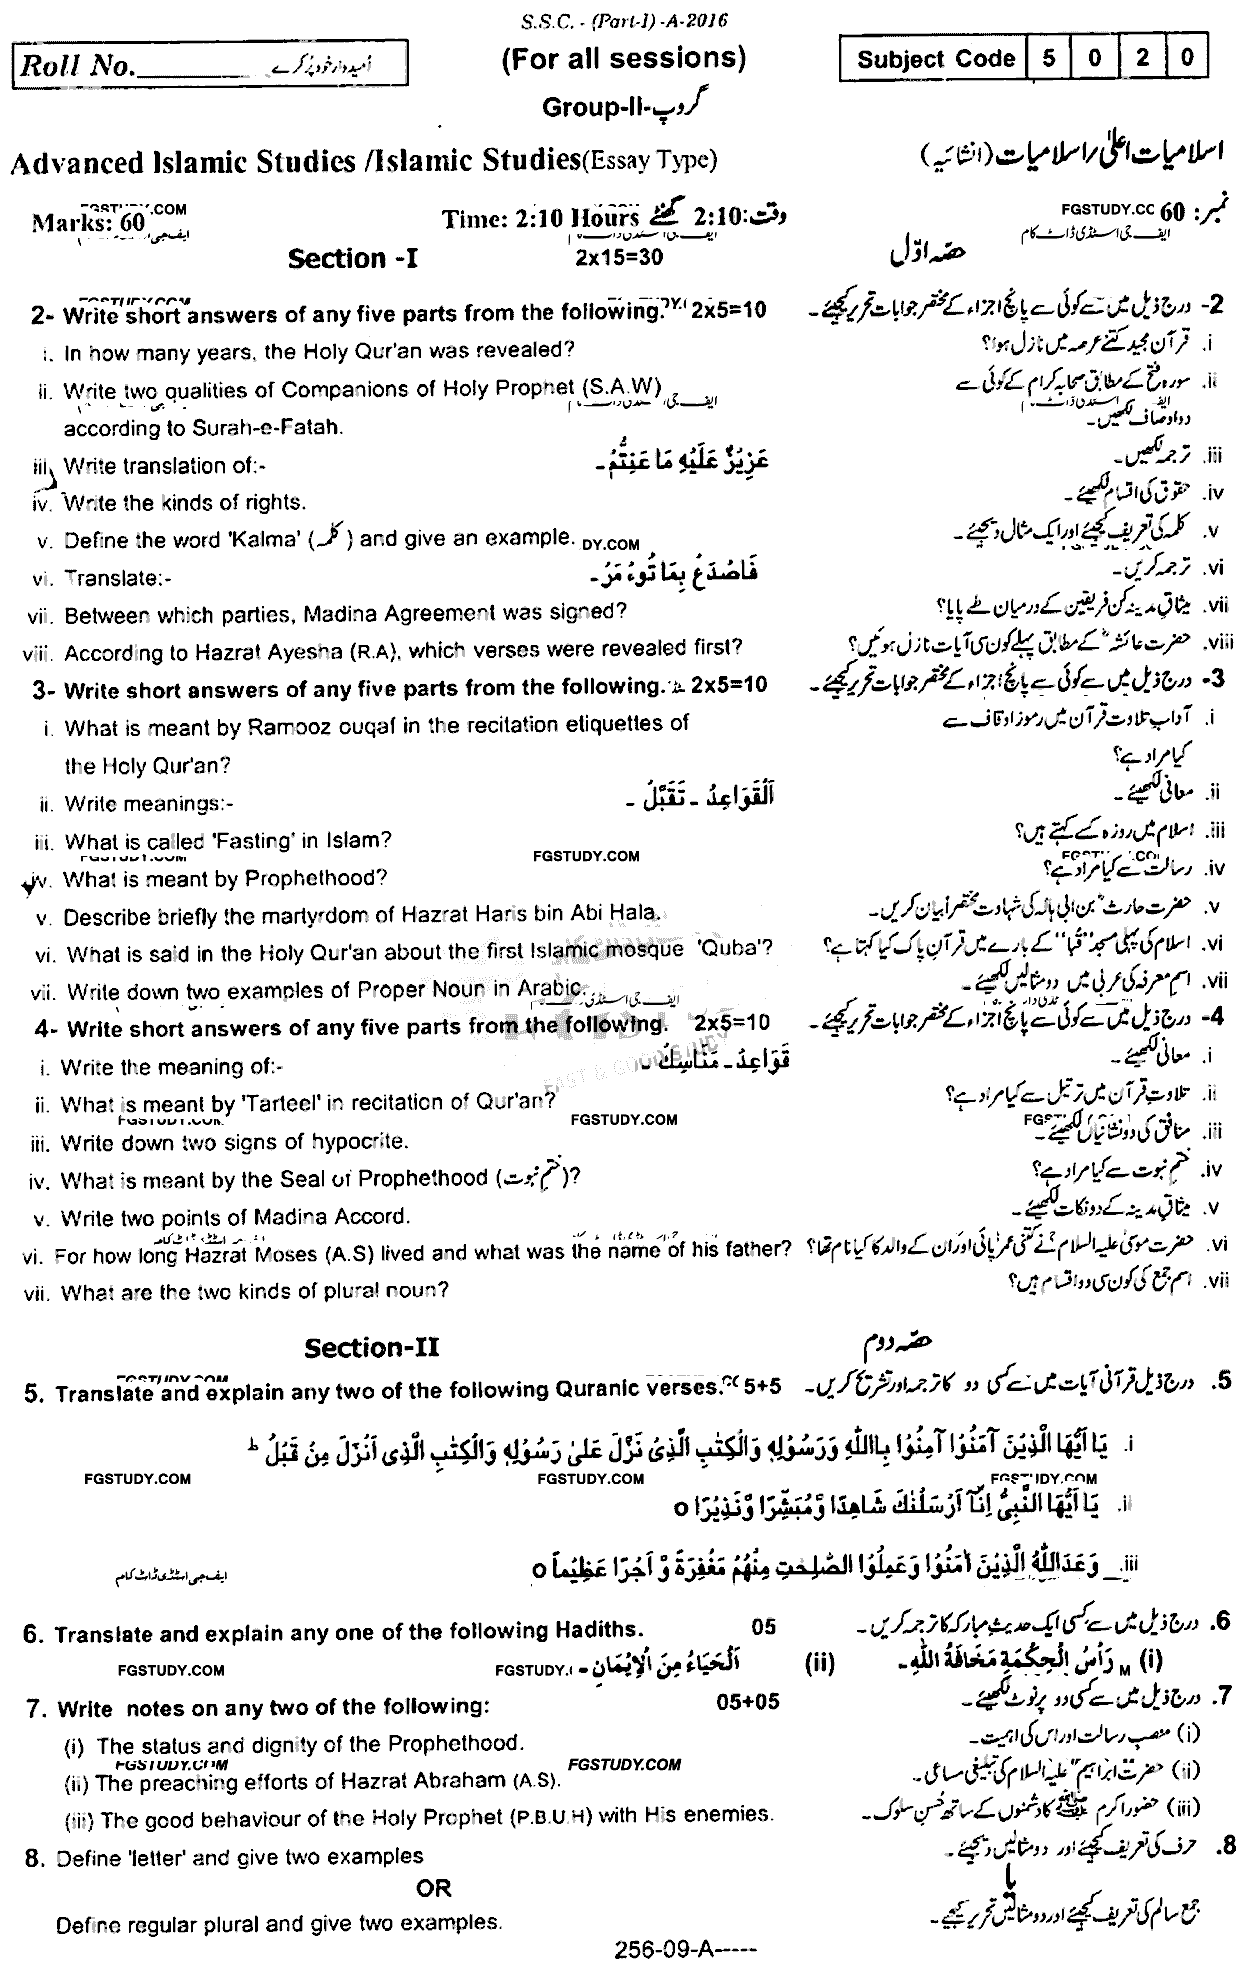 S.S.C. - (Part-I) -A-2016
Roll No. اُمیدوار خود پُر کرے
(For all sessions)
Subject Code 5 0 2 0
Group-II-گروپ
Advanced Islamic Studies /Islamic Studies(Essay Type) اسلامیات اعلیٰ/اسلامیات (انشائیہ)
FGSTUDY.COM
Marks: 60 Time: 2:10 Hours وقت:2:10 گھنٹے نمبر: 60
FGSTUDY.CC
ایف جی اسٹڈی ڈاٹ کام
Section -I 2x15=30 حصّہ اوّل
2- Write short answers of any five parts from the following. 2x5=10 2- درج ذیل میں سے کوئی سے پانچ اجزاء کے مختصر جوابات تحریر کیجئیے۔
i. In how many years, the Holy Qur'an was revealed? i. قرآن مجید کتنے عرصہ میں نازل ہوا؟
ii. Write two qualities of Companions of Holy Prophet (S.A.W) ii. سورہ فتح کے مطابق صحابہ کرام کے کوئی سے
according to Surah-e-Fatah. دو اوصاف لکھیں۔
iii. Write translation of:- عَزِيْزٌ عَلَيْهِ مَا عَنِتُّمْ۔ iii. ترجمہ لکھیں۔
iv. Write the kinds of rights. iv. حقوق کی اقسام لکھیئے۔
v. Define the word 'Kalma' (کلمہ) and give an example. v. کلمہ کی تعریف کیجئیے اور ایک مثال دیجئیے۔
DY.COM
vi. Translate:- فَاصْدَعْ بِمَا تُوءْمَرُ۔ vi. ترجمہ کریں۔
vii. Between which parties, Madina Agreement was signed? vii. میثاقِ مدینہ کن فریقین کے درمیان طے پایا؟
viii. According to Hazrat Ayesha (R.A), which verses were revealed first? viii. حضرت عائشہؓ کے مطابق پہلے کون سی آیات نازل ہوئیں؟
3- Write short answers of any five parts from the following. 2x5=10 3- درج ذیل میں سے کوئی سے پانچ اجزاء کے مختصر جوابات تحریر کیجئیے۔
i. What is meant by Ramooz ouqaf in the recitation etiquettes of i. آدابِ تلاوت قرآن میں رموز اوقاف سے
the Holy Qur'an? کیا مراد ہے؟
ii. Write meanings:- اَلْقَوَاعِدُ ۔ تَقَبَّلْ ۔ ii. معانی لکھیئے۔
iii. What is called 'Fasting' in Islam? iii. اسلام میں روزہ کسے کہتے ہیں؟
FGSTUDY.COM FGSTUDY.COM
iv. What is meant by Prophethood? iv. رسالت سے کیا مراد ہے؟
v. Describe briefly the martyrdom of Hazrat Haris bin Abi Hala. v. حضرت حارثؓ بن ابی ہالہ کی شہادت مختصراً بیان کریں۔
vi. What is said in the Holy Qur'an about the first Islamic mosque 'Quba'? vi. اسلام کی پہلی مسجد "قُبا" کے بارے میں قرآنِ پاک کیا کہتا ہے؟
vii. Write down two examples of Proper Noun in Arabic. vii. اسم معرفہ کی عربی میں دو مثالیں لکھیئے۔
4- Write short answers of any five parts from the following. 2x5=10 4- درج ذیل میں سے کوئی سے پانچ اجزاء کے مختصر جوابات تحریر کیجئیے۔
i. Write the meaning of:- قَوَاعِدُ۔ مَنَاسِكُ i. معانی لکھیئے۔
ii. What is meant by 'Tarteel' in recitation of Qur'an? ii. تلاوتِ قرآن میں ترتیل سے کیا مراد ہے؟
FGSTUDY.COM FGSTUDY.COM
iii. Write down two signs of hypocrite. iii. منافق کی دو نشانیاں لکھیئے۔
iv. What is meant by the Seal of Prophethood (ختم نبوت)? iv. ختمِ نبوت سے کیا مراد ہے؟
v. Write two points of Madina Accord. v. میثاقِ مدینہ کے دو نکات لکھیئے۔
vi. For how long Hazrat Moses (A.S) lived and what was the name of his father? vi. حضرت موسیٰ علیہ السلام نے کتنی عمر پائی اور اُن کے والد کا کیا نام تھا؟
vii. What are the two kinds of plural noun? vii. اسم جمع کی کون سی دو اقسام ہیں؟
Section-II حصّہ دوم
5. Translate and explain any two of the following Quranic verses. 5+5 5. درج ذیل قرآنی آیات میں سے کسی دو کا ترجمہ اور تشریح کریں۔
i. يَا اَيُّهَا الَّذِيْنَ آمَنُوْا آمِنُوْا بِاللّٰهِ وَرَسُوْلِهٖ وَالْكِتٰبِ الَّذِىْ نَزَّلَ عَلىٰ رَسُوْلِهٖ وَالْكِتٰبِ الَّذِى اَنْزَلَ مِنْ قَبْلُ ط
FGSTUDY.COM FGSTUDY.COM FGSTUDY.COM
ii. يَا اَيُّهَا النَّبِىُّ اِنَّآ اَرْسَلْنٰكَ شَاهِدًا وَّمُبَشِّرًا وَّنَذِيْرًا o
iii. وَعَدَاللّٰهُ الَّذِيْنَ اٰمَنُوْا وَعَمِلُوْا الصّٰلِحٰتِ مِنْهُمْ مَغْفِرَةً وَّ اَجْرًا عَظِيْماً o
ایف جی اسٹڈی ڈاٹ کام
6. Translate and explain any one of the following Hadiths. 05 6. درج ذیل میں سے کسی ایک حدیثِ مبارکہ کا ترجمہ کریں۔
(i) رَأْسُ الْحِكْمَةِ مَخَافَةُ اللّٰهِ۔ (ii) اَلْحَيَاءُ مِنَ الْاِيْمَانِ۔
FGSTUDY.COM FGSTUDY.
7. Write notes on any two of the following: 05+05 7. درج ذیل میں سے کسی دو پر نوٹ لکھیئے۔
(i) The status and dignity of the Prophethood. (i) منصبِ رسالت اور اس کی اہمیت۔
FGSTUDY.COM FGSTUDY.COM
(ii) The preaching efforts of Hazrat Abraham (A.S). (ii) حضرت ابراہیم علیہ السلام کی تبلیغی مساعی۔
(iii) The good behaviour of the Holy Prophet (P.B.U.H) with His enemies. (iii) حضور اکرم ﷺ کا دشمنوں کے ساتھ حُسنِ سلوک۔
8. Define 'letter' and give two examples 8. حرف کی تعریف کیجئیے اور دو مثالیں دیجئیے۔
OR یا
Define regular plural and give two examples. جمع سالم کی تعریف کیجئیے اور دو مثالیں تحریر کیجیے۔
256-09-A-----